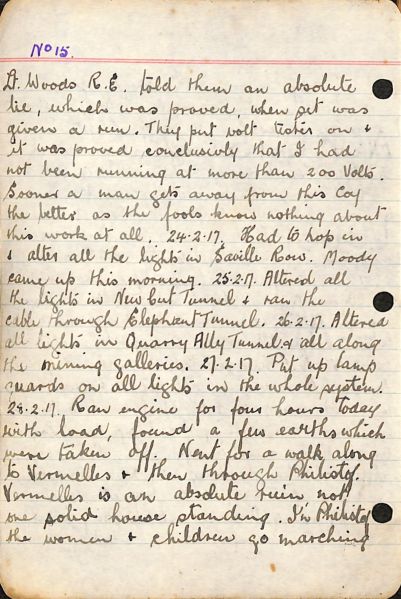 No 15.
Lt. Woods R.E. told them an absolute
lie, which was proved, when set was
given a run. They put volt tester on &
it was proved conclusivly that I had
not been running at more than 200 Volts.
Sooner a man gets away from this Coy
the better as the fools know nothing about
this work at all. 24-2-17. Had to hop in
& alter all the lights in Saville Row. Moody
came up this morning. 25-2-17. Altered all
the lights in New Cut Tunnel & ran the
cable through Elephant Tunnel. 26-2-17. Altered
all lights in Quarry Ally Tunnel & all along
the mining galleries. 27-2-17. Put up lamp
guards on all lights in the whole system.
28-2-17. Ran engine for four hours today
with load, found a few earths which
were taken off. Went for a walk along
to Vermelles & then through Philistof.
Vermelles is an absolute ruin not
one solid house standing. In Philistof
the women & children go marching